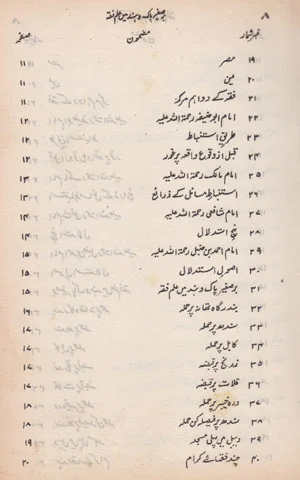 ۸ برصغیر پاک و ہند میں علم فقہ
نمبر شمار مضمون صفحہ
۱۹ مصر ۱۱
۲۰ یمن ۱۱
۲۱ فقہ کے دو اہم مرکز ۱۱
۲۲ امام ابو حنیفہ رحمۃ اللہ علیہ ۱۲
۲۳ طریق استنباط ۱۲
۲۴ قبل از وقوع واقعہ پر غور ۱۲
۲۵ امام مالک رحمۃ اللہ علیہ ۱۳
۲۶ استنباط مسائل کے ذرائع ۱۳
۲۷ امام شافعی رحمۃ اللہ علیہ ۱۴
۲۸ نہج استدلال ۱۴
۲۹ امام احمد بن حنبل رحمۃ اللہ علیہ ۱۵
۳۰ اصول استدلال ۱۵
۳۱ برصغیر پاک و ہند میں علم فقہ ۱۵
۳۲ بندرگاہ تھانہ پر حملہ ۱۶
۳۳ سندھ پر حملہ ۱۷
۳۴ کابل پر حملہ ۱۷
۳۵ پر قبضہ ۱۷
۳۶ قلات پر قبضہ ۱۷
۳۷ درہ خیبر پر حملہ ۱۸
۳۸ سندھ پر فیصلہ کن حملہ ۱۸
۳۹ دیبل میں پہلی مسجد ۱۹
۴۰ چند فقہائے کرام ۲۰